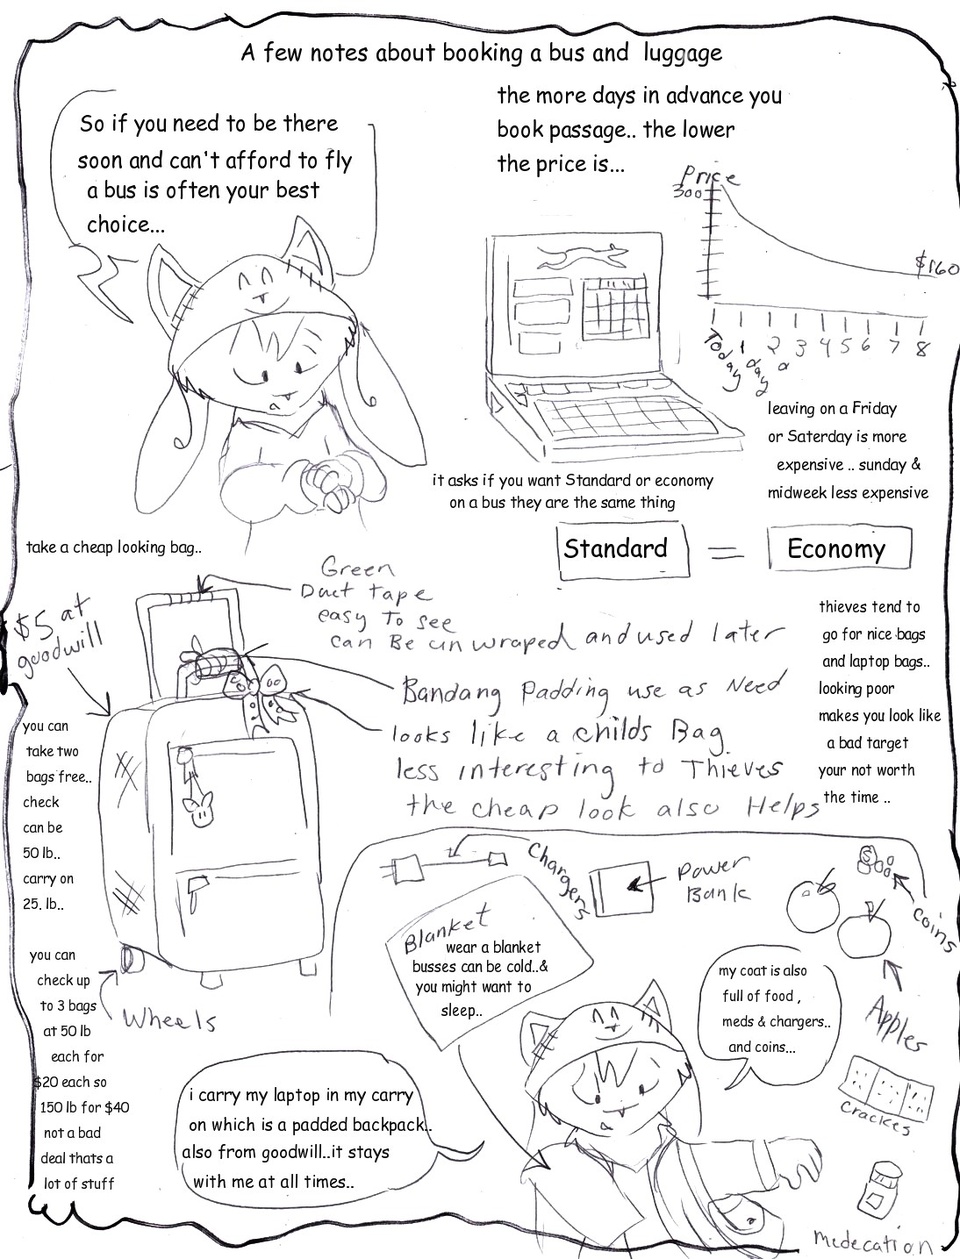 A few notes about booking a bus and luggage
So if you need to be there
soon and can't afford to fly
a bus is often your best
choice...
the more days in advance you
book passage.. the lower
the price is...
Price
300
$160
Today 1 day 2 3 4 5 6 7 8
a
leaving on a Friday
or Saterday is more
expensive .. sunday &
midweek less expensive
it asks if you want Standard or economy
on a bus they are the same thing
Standard = Economy
take a cheap looking bag..
$5 at
goodwill
Green
Duct tape
easy To see
can Be unwraped and used later
Bandang Padding use as Need
looks like a childs Bag
less interesting to Thieves
the cheap look also Helps
thieves tend to
go for nice bags
and laptop bags..
looking poor
makes you look like
a bad target
your not worth
the time ..
you can
take two
bags free..
check
can be
50 lb..
carry on
25. lb..
you can
check up
to 3 bags
at 50 lb
each for
$20 each so
150 lb for $40
not a bad
deal thats a
lot of stuff
Wheels
Chargers
Power
Bank
$
coins
Apples
Crackes
medecation
Blanket
wear a blanket
busses can be cold..&
you might want to
sleep..
my coat is also
full of food ,
meds & chargers..
and coins...
i carry my laptop in my carry
on which is a padded backpack..
also from goodwill..it stays
with me at all times..